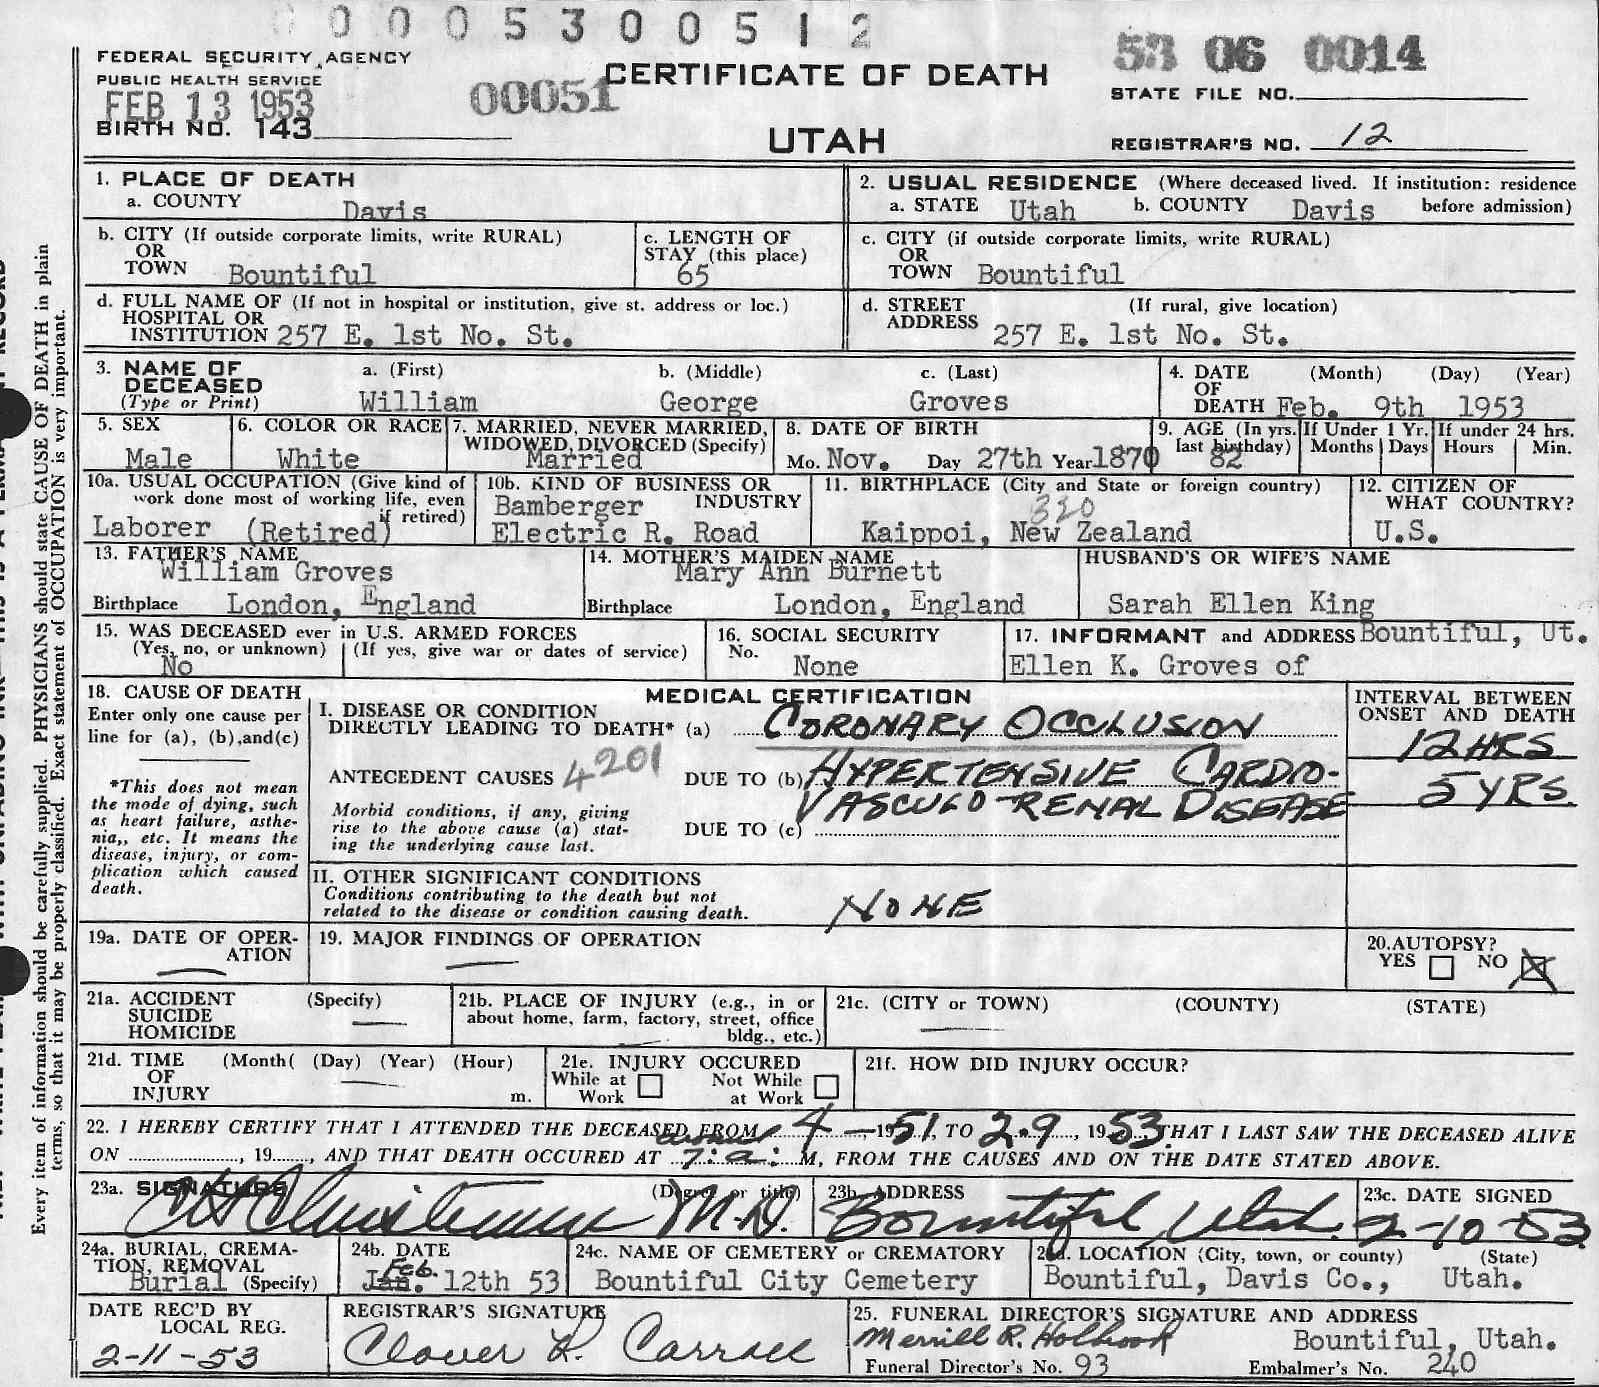 0 0 0 5 3 0 0 5 1 2
FEDERAL SECURITY AGENCY
PUBLIC HEALTH SERVICE
FEB 13 1953
BIRTH NO. 143
00051
CERTIFICATE OF DEATH
UTAH
53 06 0014
STATE FILE NO.
REGISTRAR'S NO. 12
1. PLACE OF DEATH
a. COUNTY Davis
2. USUAL RESIDENCE (Where deceased lived. If institution: residence before admission)
a. STATE Utah b. COUNTY Davis
b. CITY (If outside corporate limits, write RURAL)
OR
TOWN Bountiful
c. LENGTH OF
STAY (this place)
65
c. CITY (if outside corporate limits, write RURAL)
OR
TOWN Bountiful
d. FULL NAME OF (If not in hospital or institution, give st. address or loc.)
HOSPITAL OR
INSTITUTION 257 E. 1st No. St.
d. STREET (If rural, give location)
ADDRESS 257 E. 1st No. St.
3. NAME OF
DECEASED
(Type or Print)
a. (First) b. (Middle) c. (Last)
William George Groves
4. DATE (Month) (Day) (Year)
OF
DEATH Feb. 9th 1953
5. SEX
Male
6. COLOR OR RACE
White
7. MARRIED, NEVER MARRIED,
WIDOWED, DIVORCED (Specify)
Married
8. DATE OF BIRTH
Mo. Nov. Day 27th Year 1870
9. AGE (In yrs.
last birthday)
82
If Under 1 Yr.
Months Days
If under 24 hrs.
Hours Min.
10a. USUAL OCCUPATION (Give kind of
work done most of working life, even
if retired)
Laborer (Retired)
10b. KIND OF BUSINESS OR
INDUSTRY
Bamberger
Electric R. Road
11. BIRTHPLACE (City and State or foreign country)
320
Kaippoi, New Zealand
12. CITIZEN OF
WHAT COUNTRY?
U.S.
13. FATHER'S NAME
William Groves
Birthplace London, England
14. MOTHER'S MAIDEN NAME
Mary Ann Burnett
Birthplace London, England
HUSBAND'S OR WIFE'S NAME
Sarah Ellen King
15. WAS DECEASED ever in U.S. ARMED FORCES
(Yes, no, or unknown) (If yes, give war or dates of service)
No
16. SOCIAL SECURITY
No.
None
17. INFORMANT and ADDRESS Bountiful, Ut.
Ellen K. Groves of
18. CAUSE OF DEATH
Enter only one cause per
line for (a), (b), and (c)
*This does not mean
the mode of dying, such
as heart failure, asthe-
nia,, etc. It means the
disease, injury, or com-
plication which caused
death.
MEDICAL CERTIFICATION
I. DISEASE OR CONDITION
DIRECTLY LEADING TO DEATH* (a) CORONARY OCCLUSION
ANTECEDENT CAUSES 4201
DUE TO (b) HYPERTENSIVE CARDIO-
VASCULO-RENAL DISEASE
Morbid conditions, if any, giving
rise to the above cause (a) stat-
ing the underlying cause last.
DUE TO (c)
INTERVAL BETWEEN
ONSET AND DEATH
12 HRS
5 YRS
II. OTHER SIGNIFICANT CONDITIONS
Conditions contributing to the death but not
related to the disease or condition causing death.
NONE
19a. DATE OF OPER-
ATION
19. MAJOR FINDINGS OF OPERATION
20. AUTOPSY?
YES NO
21a. ACCIDENT (Specify)
SUICIDE
HOMICIDE
21b. PLACE OF INJURY (e.g., in or
about home, farm, factory, street, office
bldg., etc.)
21c. (CITY or TOWN) (COUNTY) (STATE)
21d. TIME (Month( (Day) (Year) (Hour)
OF
INJURY m.
21e. INJURY OCCURED
While at Not While
Work at Work
21f. HOW DID INJURY OCCUR?
22. I HEREBY CERTIFY THAT I ATTENDED THE DECEASED FROM 4 - 1951, TO 2.9, 1953, THAT I LAST SAW THE DECEASED ALIVE
around
ON , 19, AND THAT DEATH OCCURED AT 7:a:M, FROM THE CAUSES AND ON THE DATE STATED ABOVE.
23a. SIGNATURE (Degree or title) M.D.
23b. ADDRESS
Bountiful, Utah.
23c. DATE SIGNED
2-10-53
24a. BURIAL, CREMA-
TION, REMOVAL
Burial (Specify)
24b. DATE
Feb.
Jan. 12th 53
24c. NAME OF CEMETERY or CREMATORY
Bountiful City Cemetery
24d. LOCATION (City, town, or county) (State)
Bountiful, Davis Co., Utah.
DATE REC'D BY
LOCAL REG.
2-11-53
REGISTRAR'S SIGNATURE
Clover R. Carroll
25. FUNERAL DIRECTOR'S SIGNATURE AND ADDRESS
Merrill R. Holbrook Bountiful, Utah.
Funeral Director's No. 93 Embalmer's No. 240
Every item of information should be carefully supplied. PHYSICIANS should state CAUSE OF DEATH in plain
terms, so that it may be properly classified. Exact statement of OCCUPATION is very important.